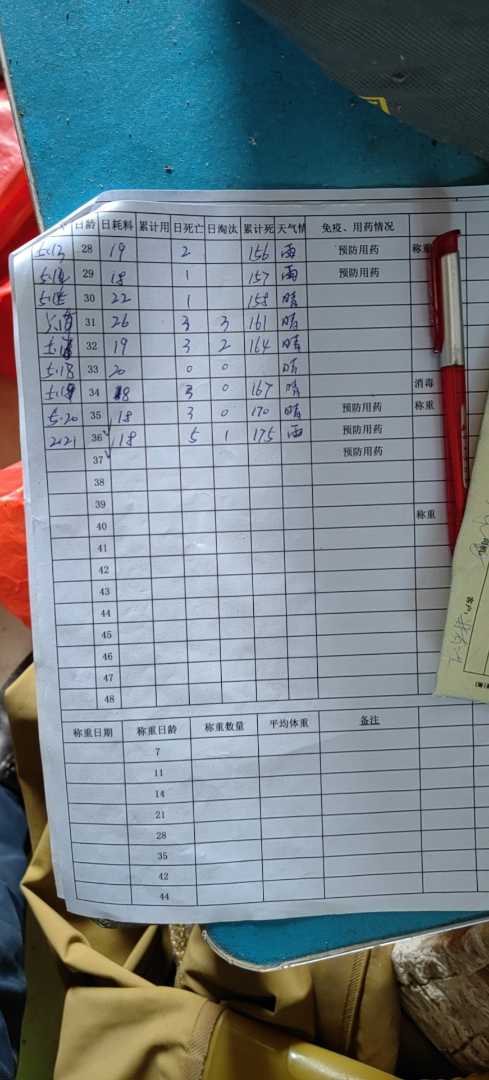 日龄 日耗料 累计用 日死亡 日淘汰 累计死 天气情 免疫、用药情况
5.13 28 19 2 156 雨 预防用药 称重
5.14 29 18 1 157 雨 预防用药
5.15 30 22 1 158 晴
31 26 3 3 161 晴
32 19 3 2 164 晴
5.18 33 20 0 0 晴
5.19 34 18 3 0 167 晴 消毒
5.20 35 18 3 0 170 晴 预防用药 称重
2021 36 18 5 1 175 雨 预防用药
37 预防用药
38
39
40 称重
41
42
43
44
45
46
47
48
客户:
称重日期 称重日龄 称重数量 平均体重 备注
7
11
14
21
28
35
42
44